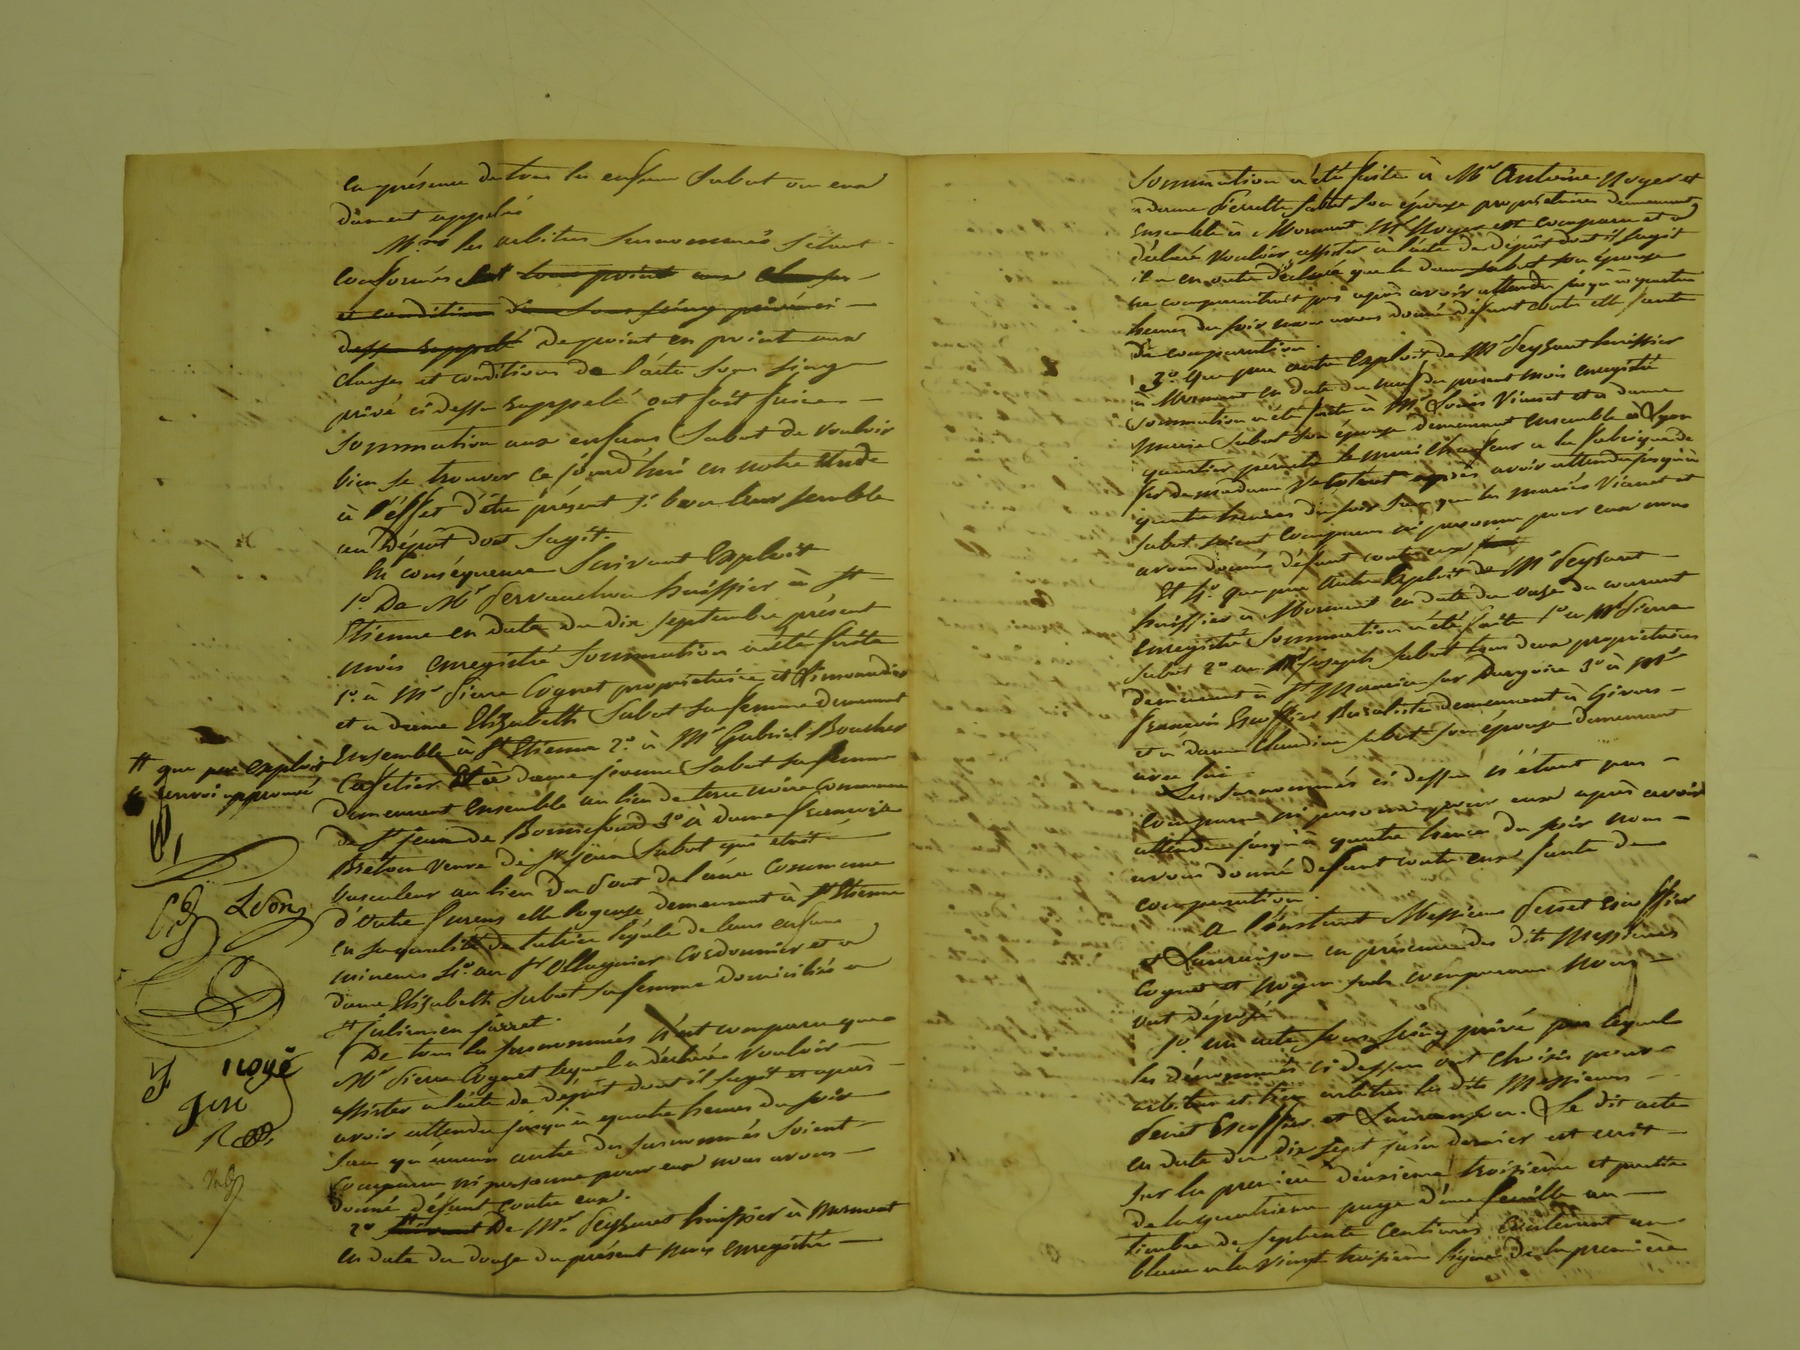 en présence de tous les enfans Sabot ou eux
dûment appelés
Mrs les arbitres susnommés s'étant
conformés et tous points aux clauses
et conditions d'un sous seing privé ci
dessus rappelé de point en point aux
clauses et conditions de l'acte sous seing
privé ci dessus rappelé ont fait faire
sommation aux enfans Sabot de vouloir
bien se trouver ce jourd'hui en notre étude
à l'effet d'être présent si bon leur semble
au dépôt dont s'agit.
En conséquence suivant exploit
1o De Mr huissier à St
Etienne en date du dix septembre présent
mois enregistré sommation a été faite
1o à Mr Pierre Cognet propriétaire et
et à dame Elizabeth Sabot sa femme demeurant
ensemble à St Etienne 2o à Mr Gabriel Boucher
Cafetier et à dame jeanne Sabot sa femme
demeurant ensemble au lieu de terre noire commune
de St jean de Bonnefond 3o à dame françoise
Breton veuve de Sr jean Sabot qui était
au lieu du Pont de l'âne commune
d'Outre furens elle logeuse demeurant à St Etienne
en sa qualité de tutrice légale de leurs enfans
mineurs 4o au Sr Ollagnier Cordonnier et à
dame Elizabeth Sabot sa femme domiciliés à
St Julien en jarret.
De tous les susnommés n'est comparu que
Mr Pierre Cognet lequel a déclaré vouloir
assister à l'acte de dépôt dont il s'agit et après
avoir attendu jusqu'à quatre heures du soir
sans qu'aucun autre des susnommés soient
comparu ni personne pour eux nous avons
donné défaut contre eux.
2o Suivant De Mr Peyssaret huissier à Mornant
en date du douze du présent mois enregistré
# que par exploit
renvoi approuvé
Noyé
sommation a été faite à Mr Antoine Noyer et
à dame Pierrette Sabot son épouse propriétaires demeurant
ensemble à Mornant. Mr Noyer est comparu et a
déclaré vouloir assister à l'acte de dépôt dont il s'agit
il a en outre déclaré que la dame Sabot son épouse
ne comparaitrait pas après avoir attendu jusqu'à quatre
heures du soir nous avons donné défaut contre elle faute
de comparution.
3o Que par autre exploit de Mr Peyssaret huissier
à Mornant en date du neuf du présent mois enregistré
sommation a été faite à Mr Louis Vianet et à dame
Marie Sabot son épouse demeurant ensemble à Lyon
quartier le mari chauffeur à la fabrique de
fer de madame après avoir attendu jusqu'à
quatre heures du soir sans que les mariés Vianet et
Sabot soient comparus ni personne pour eux nous
avons donné défaut contre eux
Et 4o que par autre exploit de Mr Peyssaret
huissier à Mornant en date du onze du courant
enregistré sommation a été faite 1o à Mr Pierre
Sabot 2o au Mr joseph Sabot tous deux propriétaires
demeurant à St Maurice sur Dargoire 3o à Mr
françois Escoffier Buraliste demeurant à Givors
et à dame Claudine Sabot son épouse demeurant
avec lui.
Les susnommés ci dessus n'étant pas
comparu ni personne pour eux après avoir
attendu jusqu'à quatre heures du soir nous
avons donné défaut contre eux faute de
comparution.
A l'instant Messieurs Peret Escoffier
et Laurenson en présence des dits Messieurs
Cognet et Noyer seuls comparans nous
ont déposé
1o un acte sous seing privé par lequel
les dénommés ci dessus ont choisis pour
arbitres et tiers arbitres les dits Messieurs
Peret Escoffier et Laurenson. Le dit acte
en date du dix sept juin dernier est écrit
sur la première deuxième troisième et partie
de la quatrième page d'une feuille au
timbre de septante centimes contenant un
blanc à la vingt troisième ligne de la première